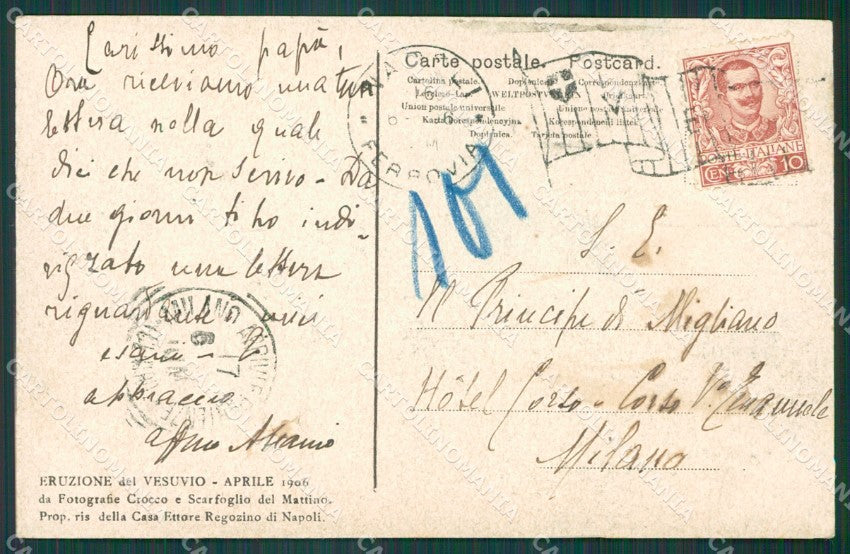 Carissimo papà,
Ora riceviamo una tua
lettera nella quale
dici che non scrivo – Da
due giorni ti ho indi-
rizzato una lettera
riguardante i miei
esami – Ti
abbraccio
affmo Ascanio
ERUZIONE del VESUVIO - APRILE 1906
da Fotografie Crocco e Scarfoglio del Mattino.
Prop. ris della Casa Ettore Regozino di Napoli.
Carte postale. Postcard.
Cartolina postale. Dopisnice. Correspondenzkarte
WELTPOSTVEREIN
Union postale universelle Unione postale universale
Karta korespondencyjna Korespondenčni listek
Dopisnica. Tarjeta postale
FERROVIA
101
POSTE ITALIANE
CENT 10
S. E.
Il Principe di Migliano
Hôtel Corso - Corso V. Emanuele
Milano
MILANO
CARTOLINOMANIA